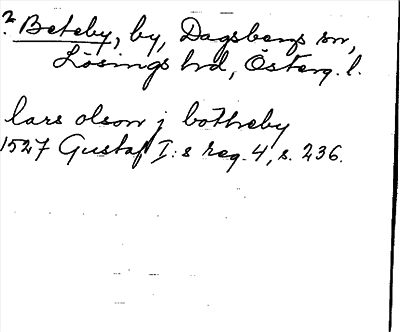 ? Beteby, by, Dagsbergs sn,
Lösings hd, Österg. l.
lars olson j botheby
1527 Gustaf I:s reg. 4, s. 236.